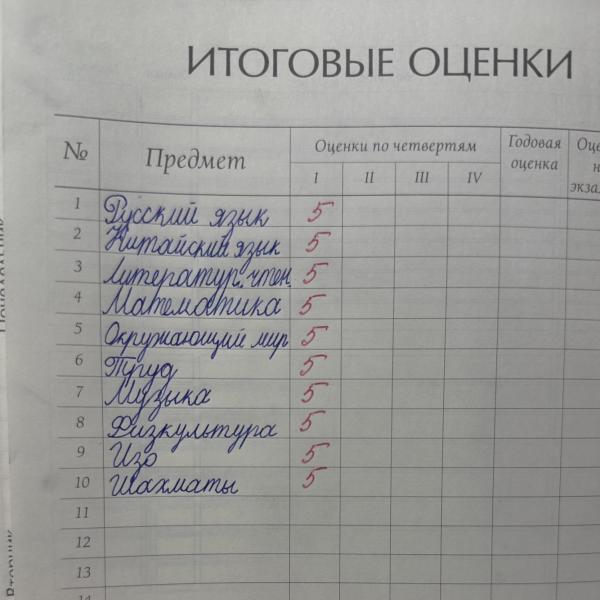 ИТОГОВЫЕ ОЦЕНКИ
№ Предмет Оценки по четвертям Годовая оценка
I II III IV
1 Русский язык 5
2 Китайский язык 5
3 Литератур. чтен. 5
4 Математика 5
5 Окружающий мир 5
6 Труд 5
7 Музыка 5
8 Физкультура 5
9 Изо 5
10 Шахматы 5
11
12
13
14